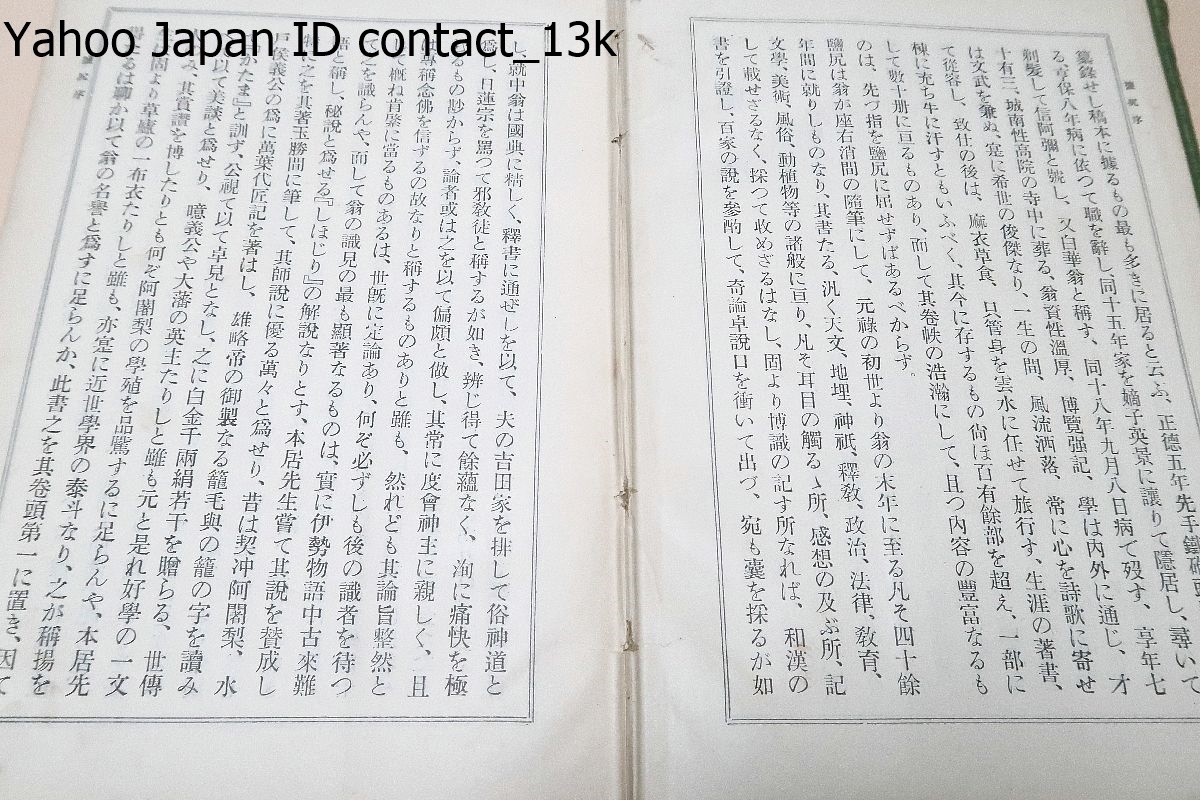 Yahoo Japan ID contact_13k
鹽尻序
纂錄せし稿本に據るもの最も多きに居ると云ふ、正德五年先手鐵砲
る、享保八年病に依つて職を辭し、同十五年家を嫡子英景に讓りて隱居し、尋いて
剃髮して信阿彌と號し、又白華翁と稱す、同十八年九月八日病て歿す、享年七
十有三、城南性高院の寺中に葬る、翁資性溫厚、博覽强記、學は內外に通じ、才
は文武を兼ぬ、寔に希世の俊傑なり、一生の間、風流洒落、常に心を詩歌に寄せ
て從容し、致仕の後は、麻衣草食、只管身を雲水に任せて旅行す、生涯の著書、
棟に充ち牛に汗すともいふべく、其今に存するもの尙ほ百有餘部を超え、一部に
して數十册に亘るものあり、而して其卷帙の浩瀚にして、且つ內容の豐富なるも
のは、先づ指を鹽尻に屈せずばあるべからず。
鹽尻は翁が座右消閒の隨筆にして、元祿の初世より翁の末年に至る凡そ四十餘
年間に就りしものなり、其書たる、汎く天文、地理、神祇、釋敎、政治、法律、敎育、
文學、美術、風俗、動植物等の諸般に亘り、凡そ耳目の觸るゝ所、感想の及ぶ所、記
して載せざるなく、採つて收めざるはなし、固より博識の記す所なれば、和漢の
書を引證し、百家の說を參酌して、奇論卓說口を衝いて出づ、宛も囊を採るが如
し、就中翁は國典に精しく、釋書に通ぜしを以て、夫の吉田家を排して俗神道と
爲し、日蓮宗を罵つて邪敎徒と稱するが如き、辨じ得て餘蘊なく、洵に痛快を極
るもの尠からず、論者或は之を以て偏頗と做し、其常に度會神主に親しく、且
は專稱念佛を信ずるの故なりと稱するものありと雖も、然れども其論旨整然と
して槪ね肯綮に當るものあるは、世旣に定論あり、何ぞ必ずしも後の識者を待つ
て之を識らんや、而して翁の識見の最も顯著なるものは、實に伊勢物語中古來難
語と稱し、秘說と爲せる『しほじり』の解說なりとす、本居先生嘗て其說を賛成し
特に之を其著玉勝間に筆して、其師說に優る萬々と爲せり、昔は契沖阿闍梨、水
戶侯義公の爲に萬葉代匠記を著はし、雄略帝の御製なる籠毛與の籠の字を讀み
『かたま』と訓ず、公視て以て卓見となし、之に白金千兩絹若干を贈らる、世傳
以て美談と爲せり、噫義公や大藩の英主たりしと雖も元と是れ好學の一文
み、其賞讚を博したりとも何ぞ阿闍梨の學殖を品隲するに足らんや、本居先
固より草廬の一布衣たりしと雖も、亦寔に近世學界の泰斗なり、之が稱揚を
得たるは聊か以て翁の名譽と爲すに足らんか、此書之を其卷頭第一に置き、因て
鹽尻序